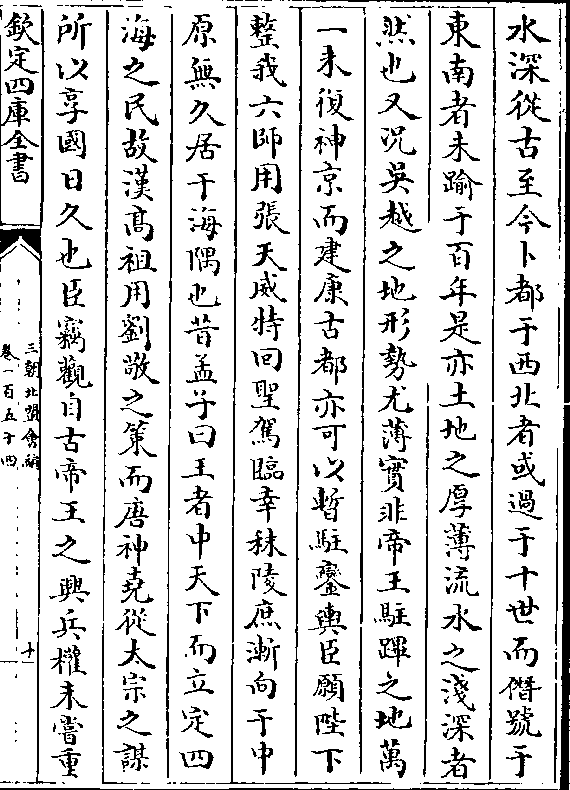 水深從古至今卜都于西北者或過于十世而僭號于
東南者未踰于百年是亦土地之厚薄流水之淺深者
然也又况吳越之地形勢尤薄實非帝王駐蹕之地萬
一未復神京而建康古都亦可以暫駐鑾輿臣願陛下
整我六師用張天威特回聖駕臨幸秣陵庶漸向于中
原無久居于海隅也昔孟子曰王者中天下而立定四
海之民故漢髙祖用劉敬之策而唐神堯從太宗之謀
所以享國日久也臣竊觀自古帝王之興兵權未嘗重
欽定四庫全書
三朝北盟會編
卷一百五十四
十